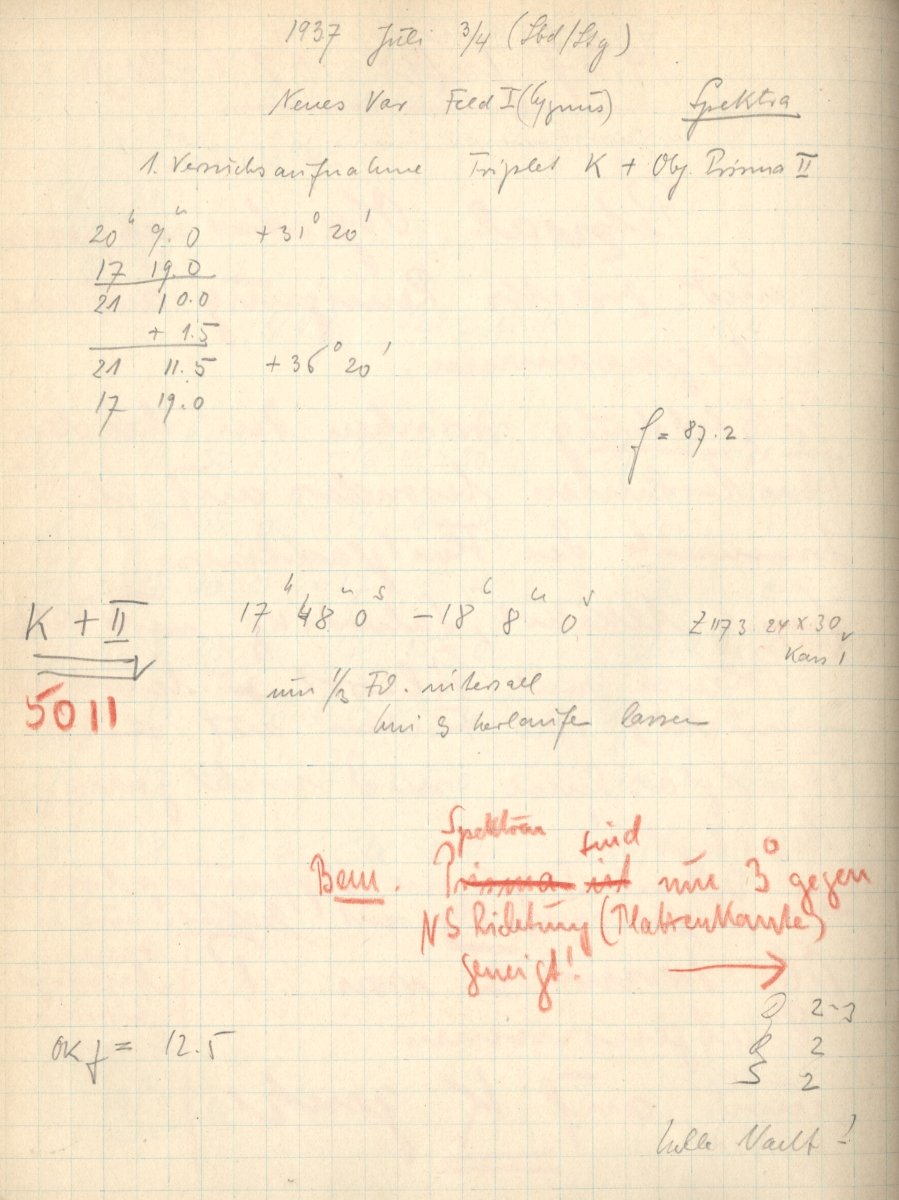 1937 Juli 3/4 (Sbd/Stg)
Neues Var Feld I (Cygnus) Spektra
1. Versuchsaufnahme Triplet K + Obj. Prisma II
20ʰ 9.ᵐ0 +31° 20'
17 19.0
21 10.0
+ 1.5
21 11.5 +36° 20'
17 19.0
f = 87.2
K + II 17ʰ 48ᵐ 0ˢ – 18ʰ 8ᵐ 0ˢ
Z 1173 24 x 30
5011
um 1/2 Fd. intervall
laufen lassen
Spektren sind
Bem. Prisma ist um 3° gegen
NS Richtung (Plattenkante)
geneigt! →
D 2-3
R 2
S 2
OK f = 12.5
helle Nacht!